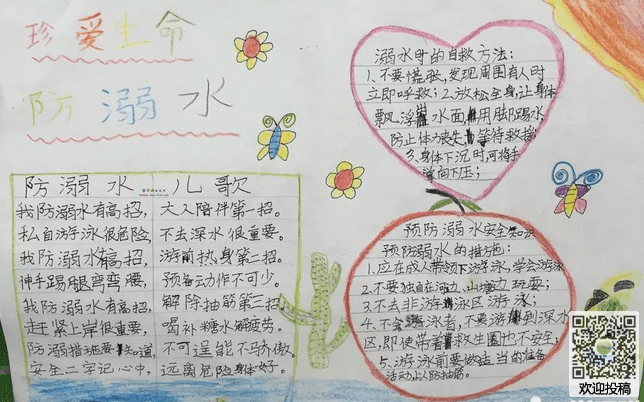 珍爱生命
防溺水
防溺水儿歌
我防溺水有高招，大人陪伴第一招。
私自游泳很危险，不去深水很重要。
我防溺水有高招，游前热身第二招。
伸手踢腿弯弯腰，预备动作不可少。
我防溺水有高招，解除抽筋第三招
赶紧上岸很重要，喝补糖水解疲劳。
防溺措施要知道，不可逞能不马乔傲。
安全二字记心中，远离危险身体好。
溺水时的自救方法：
1、不要慌张，发现周围有人时
立即呼救；2、放松全身，让身体
飘浮水面，用脚踢水，
防止体力丧失，等待救援；
3、身体下沉时，可将手
掌向下压；
预防溺水安全知识
预防溺水的措施：
1、应在成人带领下游泳，学会游泳
2、不要独自在河边、山塘边玩耍；
3、不去非游泳区游泳；
4、不会游泳者，不要游到深水
区，即使带着救生圈也不安全；
5、游泳前要做适当的准备
活动，以防抽筋。
欢迎投稿